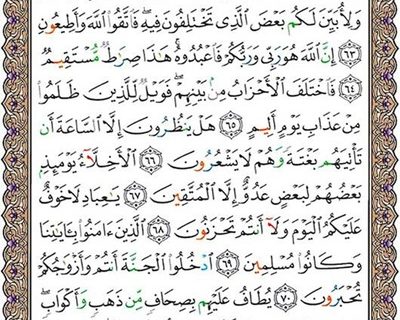 وَلِأُبَيِّنَ لَكُم بَعْضَ ٱلَّذِى تَخْتَلِفُونَ فِيهِ ۖ فَٱتَّقُوا۟ ٱللَّهَ وَأَطِيعُونِ
إِنَّ ٱللَّهَ هُوَ رَبِّى وَرَبُّكُمْ فَٱعْبُدُوهُ ۚ هَٰذَا صِرَٰطٌ مُّسْتَقِيمٌ ﴿٦٣﴾
﴿٦٤﴾ فَٱخْتَلَفَ ٱلْأَحْزَابُ مِنۢ بَيْنِهِمْ ۖ فَوَيْلٌ لِّلَّذِينَ ظَلَمُوا۟
مِنْ عَذَابِ يَوْمٍ أَلِيمٍ ﴿٦٥﴾ هَلْ يَنظُرُونَ إِلَّا ٱلسَّاعَةَ أَن
تَأْتِيَهُم بَغْتَةً وَهُمْ لَا يَشْعُرُونَ ﴿٦٦﴾ ٱلْأَخِلَّآءُ يَوْمَئِذٍۭ
بَعْضُهُمْ لِبَعْضٍ عَدُوٌّ إِلَّا ٱلْمُتَّقِينَ ﴿٦٧﴾ يَٰعِبَادِ لَا خَوْفٌ
عَلَيْكُمُ ٱلْيَوْمَ وَلَآ أَنتُمْ تَحْزَنُونَ ﴿٦٨﴾ ٱلَّذِينَ ءَامَنُوا۟ بِـَٔايَٰتِنَا
وَكَانُوا۟ مُسْلِمِينَ ﴿٦٩﴾ ٱدْخُلُوا۟ ٱلْجَنَّةَ أَنتُمْ وَأَزْوَٰجُكُمْ
تُحْبَرُونَ ﴿٧٠﴾ يُطَافُ عَلَيْهِم بِصِحَافٍ مِّن ذَهَبٍ وَأَكْوَابٍ ۖ